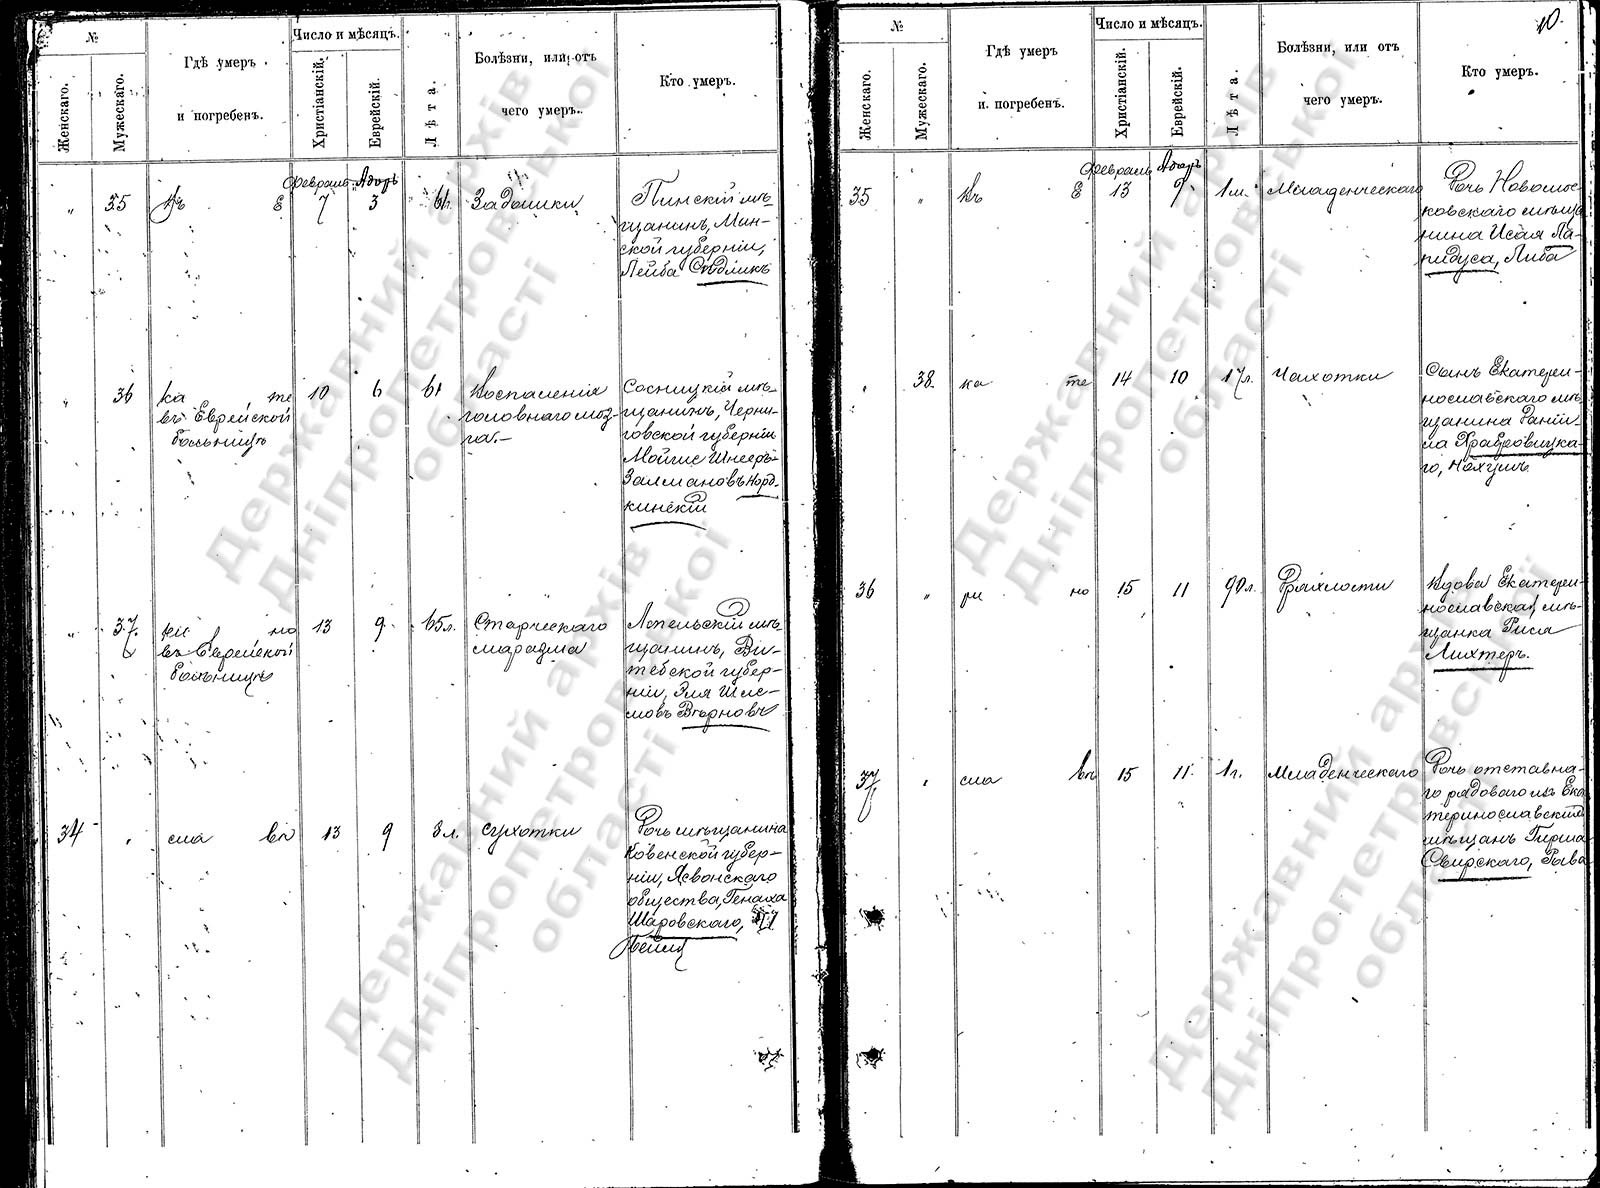 №
Женскаго.
Мужескаго.
Гдѣ умеръ
и погребенъ.
Число и мѣсяцъ.
Христіанскій.
Еврейскій.
Лѣта.
Болѣзни, или отъ
чего умеръ.
Кто умеръ.
„ 35
въ Е
Февраль Адоръ
7 3
Задышки
Пинскій мѣ-
щанинъ, Мин-
ской губерніи,
Лейба Сидликъ
„ 36
ка те
въ Еврейской
больницѣ
10 6 61
Воспаленія
головнаго моз-
га.-
Сосницкій мѣ-
щанинъ, Черни-
говской губерніи
Мойше Шнееръ-
Залмановъ Норд-
кинскій
„ 37.
ри но
въ Еврейской
больницѣ
13 9 65 л.
Старческаго
маразма
Лепельскій мѣ-
щанинъ, Ви-
тебской губер-
ніи, Эля Шле-
мовъ
34 „
сла въ
13 9 3 л.
Сухотки
Дочь мѣщанина
Ковенской губер-
ніи, Ясвонскаго
общества, Генаха
Шаровскаго,
Бейля
10.
№
Женскаго.
Мужескаго.
Гдѣ умеръ
и погребенъ.
Число и мѣсяцъ.
Христіанскій.
Еврейскій.
Лѣта.
Болѣзни, или отъ
чего умеръ.
Кто умеръ.
35 „
въ Е
Февраль Адоръ
13 9 1 м.
Младенческаго
Дочь Новомос-
ковскаго мѣща
нина Исая Ла-
пидуса, Либа
„ 38.
ка те
14 10 17 л.
Чахотки
Сынъ Екатери-
нославскаго мѣ
щанина Данiи-
ла Храбровицка-
го, Нахумъ
36 „
ри но
15 11 90 л.
Дряхлости
Вдова Екатери-
нославская мѣ-
щанка Рися
Лихтеръ.
37 „
сла въ
15 11 1 г.
Младенческаго
Дочь отставна-
го рядоваго изъ Ека
теринославскихъ
мѣщанъ Гирша
Свирскаго, Рыва
Державний архів
Дніпропетровської
області
Державний архів
Дніпропетровської
області
Державний архів
Дніпропетровської
області
Державний архів
Дніпропетровської
області